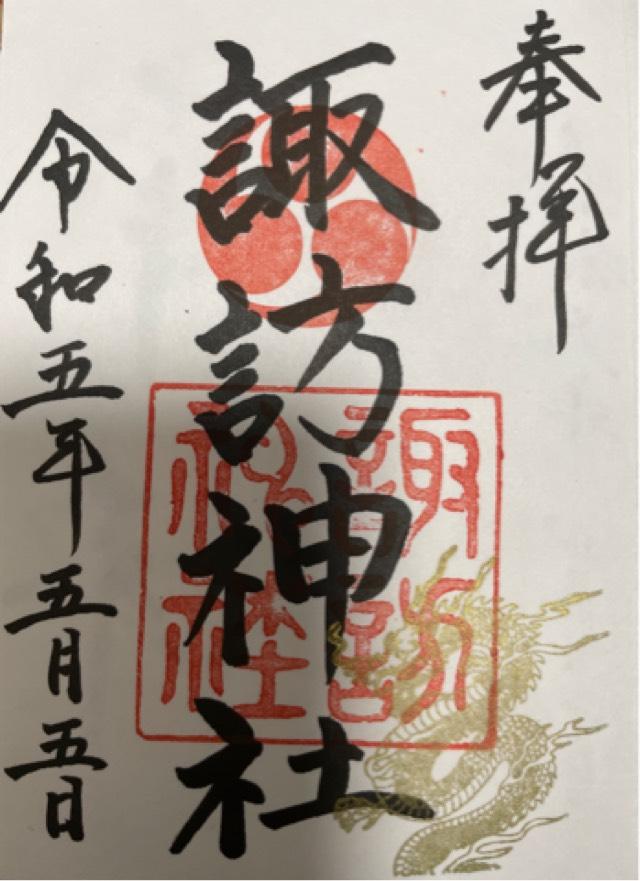 奉拝
諏訪神社
諏訪神社
令和五年五月五日